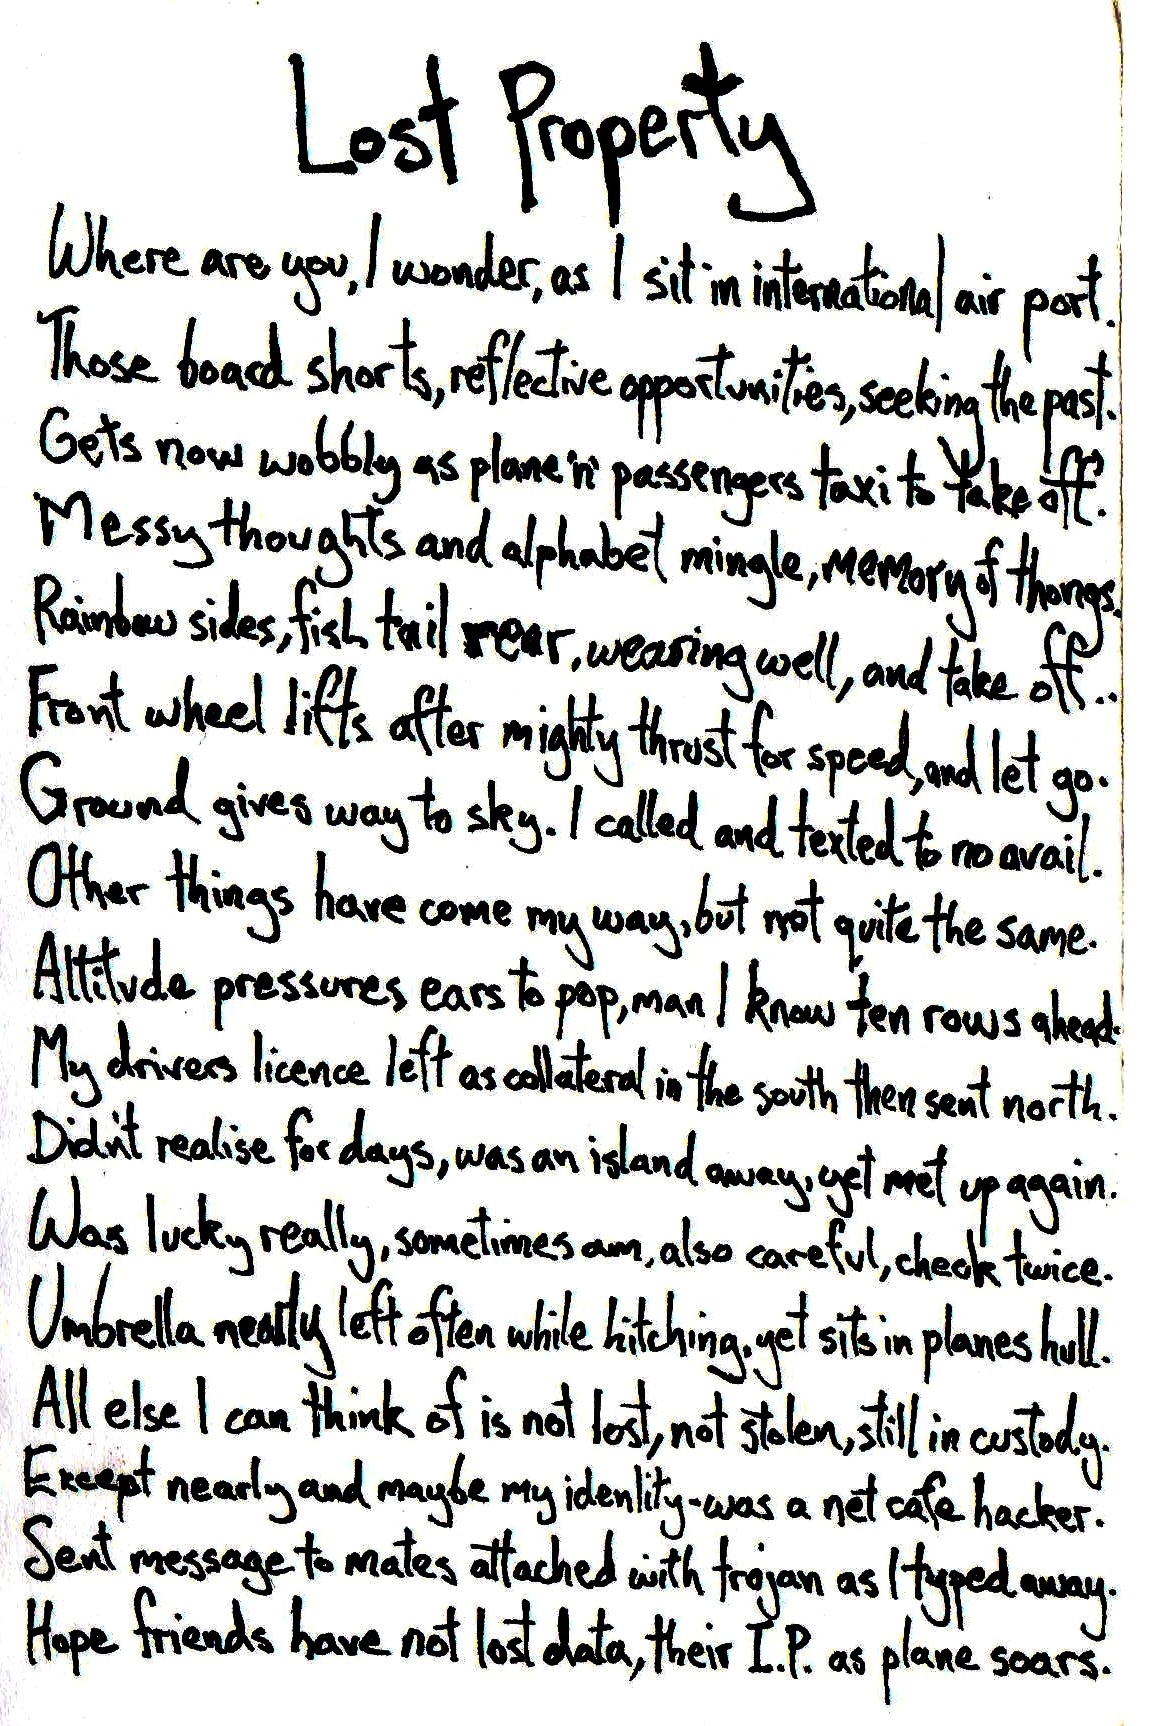 Lost Property
Where are you, I wonder, as I sit in international air port.
Those board shorts, reflective opportunities, seeking the past.
Gets now wobbly as plane 'n' passengers taxi to take off.
Messy thoughts and alphabet mingle, memory of thongs.
Rainbow sides, fish tail rear, wearing well, and take off..
Front wheel lifts after mighty thrust for speed, and let go.
Ground gives way to sky. I called and texted to no avail.
Other things have come my way, but not quite the same.
Altitude pressures ears to pop, man I know ten rows ahead.
My drivers licence left as collateral in the south then sent north.
Didn't realise for days, was an island away, yet met up again.
Was lucky really, sometimes am, also careful, check twice.
Umbrella nearly left often while hitching, yet sits in planes hull.
All else I can think of is not lost, not stolen, still in custody.
Except nearly and maybe my identity-was a net cafe hacker.
Sent message to mates attached with trojan as I typed away.
Hope friends have not lost data, their I.P. as plane soars.